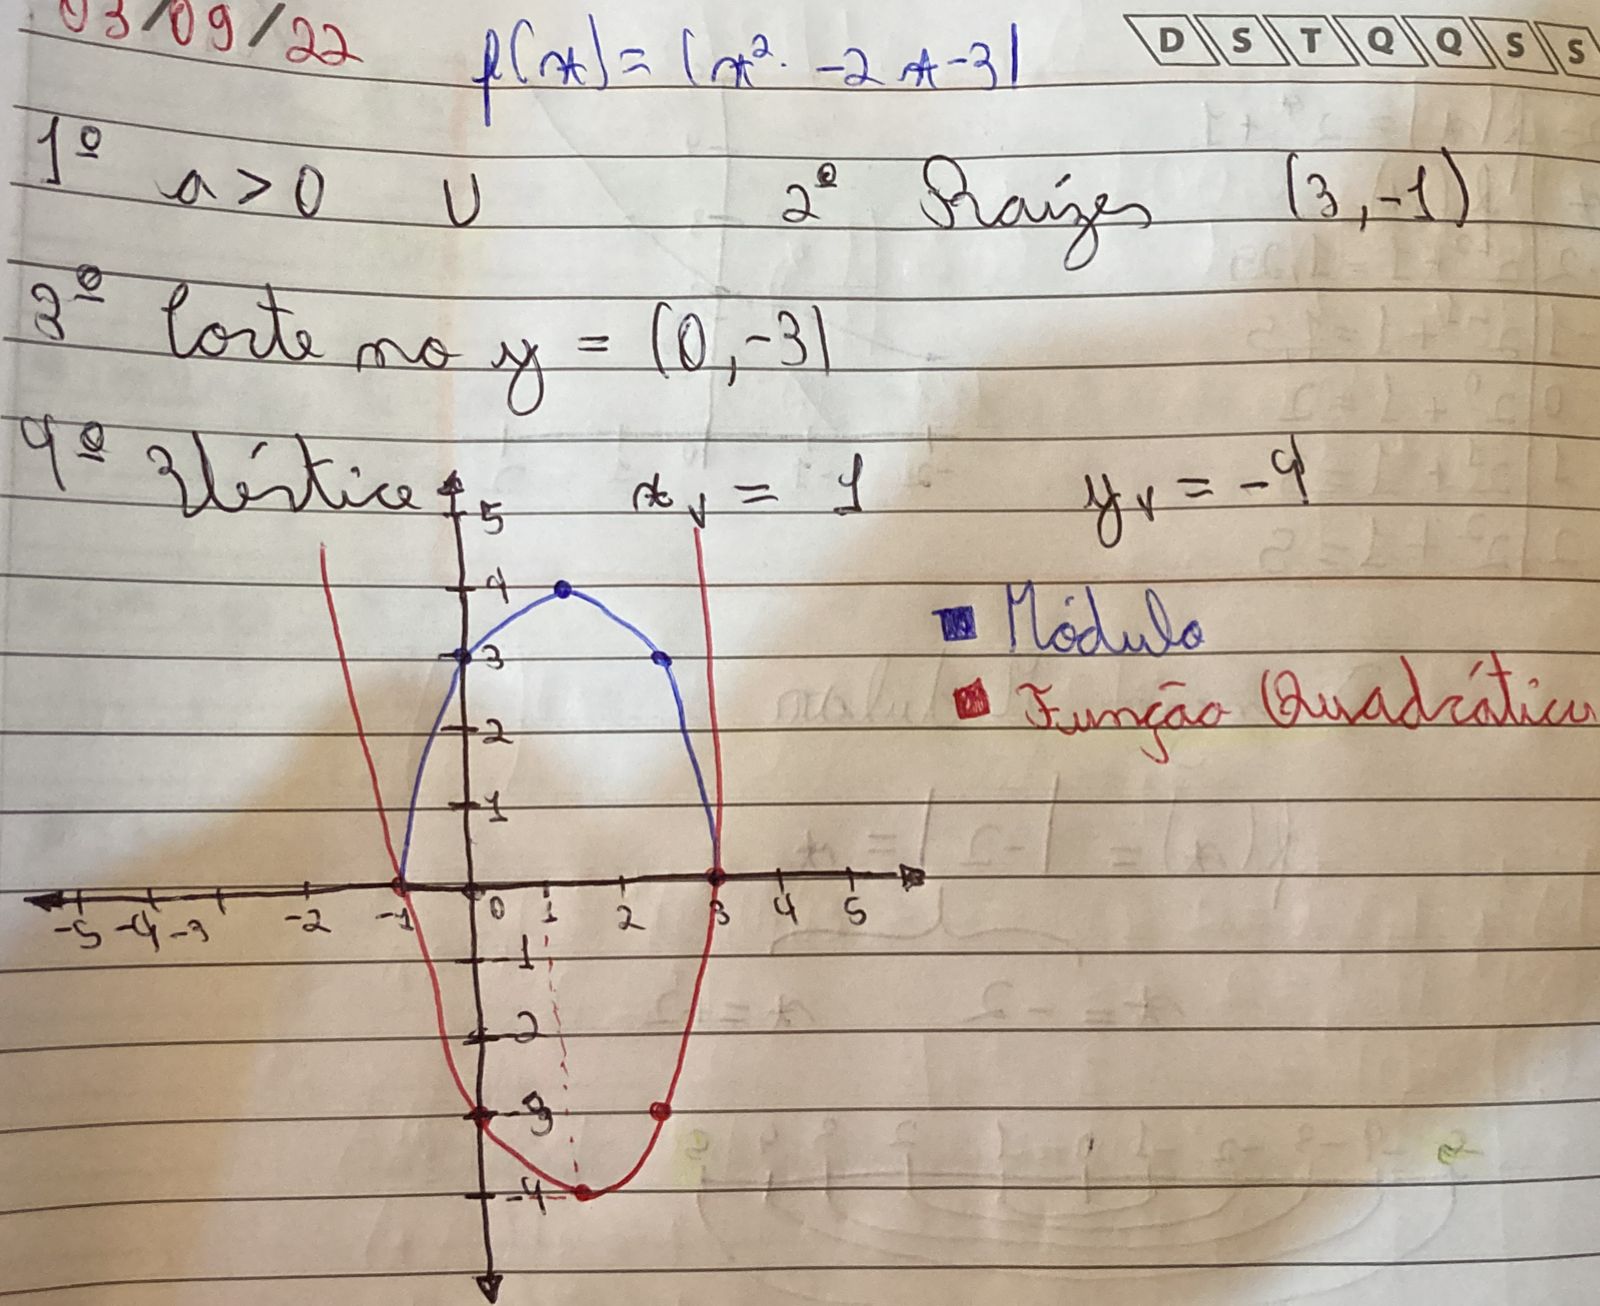 03/09/22
f(x) = |x². -2x-3|
D S T Q Q S S
1º a > 0 U 2º Raízes (3,-1)
3º Corte no y = (0,-3)
4º Vértice xv = 1 yv = -4
5
4
Módulo
3
Função Quadrática
2
1
-5 -4 -3 -2 -1 0 1 2 3 4 5
-1
-2
-3
-4